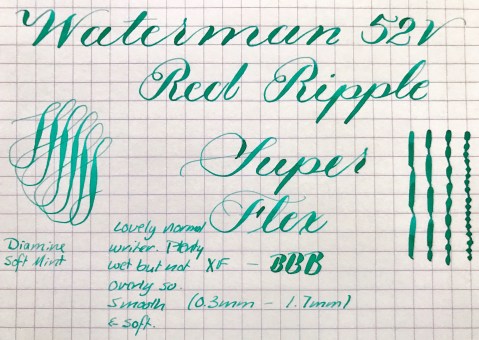 Waterman 52V
Red Ripple
Super
Flex
Lovely normal
writer. Plenty
wet but not
overly so.
Smooth
& soft.
XF - BBB
(0.3mm - 1.7mm)
Diamine
Soft Mint